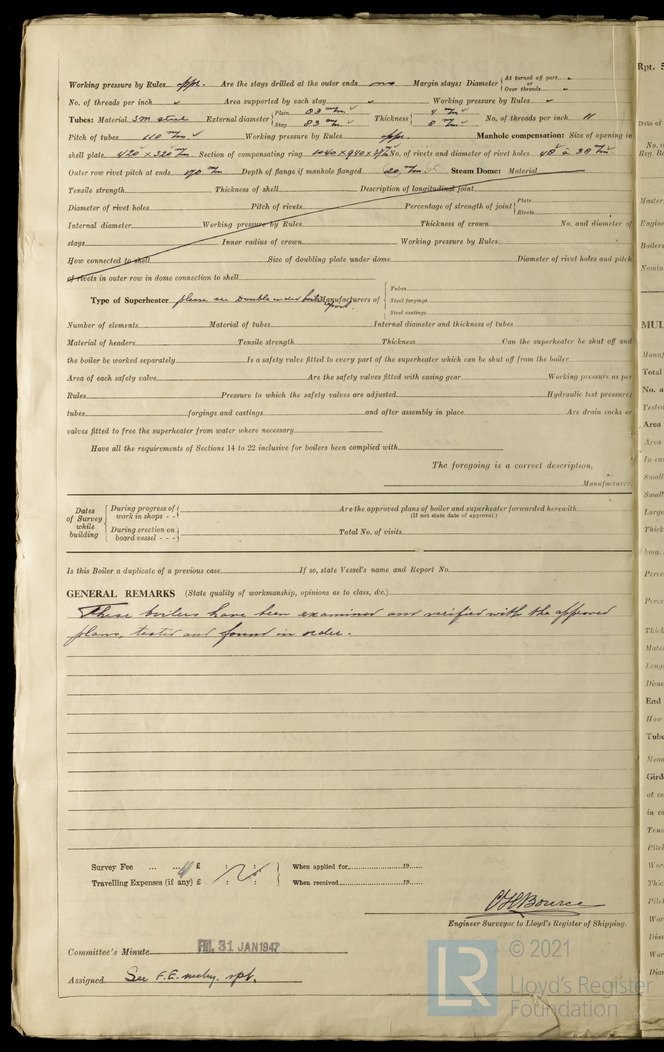 Working pressure by Rules appr. Are the stays drilled at the outer ends no Margin stays: Diameter { At turned off part, or Over threads
No. of threads per inch Area supported by each stay Working pressure by Rules
Tubes: Material S M steel External diameter { Plain 83 m/m Stay 83 m/m Thickness { 4 m/m 8 m/m No. of threads per inch 11
Pitch of tubes 110 m/m Working pressure by Rules appr. Manhole compensation: Size of opening in
shell plate 420 × 320 m/m Section of compensating ring No. of rivets and diameter of rivet holes
Outer row rivet pitch at ends 170 m/m Depth of flange if manhole flanged 20 m/m Steam Dome: Material
Tensile strength Thickness of shell Description of longitudinal joint
Diameter of rivet holes Pitch of rivets Percentage of strength of joint { Plate Rivets
Internal diameter Working pressure by Rules Thickness of crown No. and diameter of
stays Inner radius of crown Working pressure by Rules
How connected to shell Size of doubling plate under dome Diameter of rivet holes and pitch
of rivets in outer row in dome connection to shell
Type of Superheater please see Manufacturers of { Tubes Steel forgings Steel castings
Number of elements Material of tubes Internal diameter and thickness of tubes
Material of headers Tensile strength Thickness Can the superheater be shut off and
the boiler be worked separately Is a safety valve fitted to every part of the superheater which can be shut off from the boiler
Area of each safety valve Are the safety valves fitted with easing gear Working pressure as per
Rules Pressure to which the safety valves are adjusted Hydraulic test pressure:
tubes forgings and castings and after assembly in place Are drain cocks or
valves fitted to free the superheater from water where necessary
Have all the requirements of Sections 14 to 22 inclusive for boilers been complied with
The foregoing is a correct description,
Manufacturer.
Dates of Survey while building { During progress of work in shops - - During erection on board vessel - - -
Are the approved plans of boiler and superheater forwarded herewith
(If not state date of approval.)
Total No. of visits
Is this Boiler a duplicate of a previous case If so, state Vessel's name and Report No.
GENERAL REMARKS (State quality of workmanship, opinions as to class, &c.)
These boilers have been examined and verified with the approved
plans, tested and found in order.
Survey Fee ... ... £ : : When applied for, 19
Travelling Expenses (if any) £ : : When received, 19
C H Bource
Engineer Surveyor to Lloyd's Register of Shipping.
Committee's Minute FRI. 31 JAN 1947
Assigned See F.E. mchy. rpt.
© 2021
LR
Lloyd's Register
Foundation
Rpt. 5